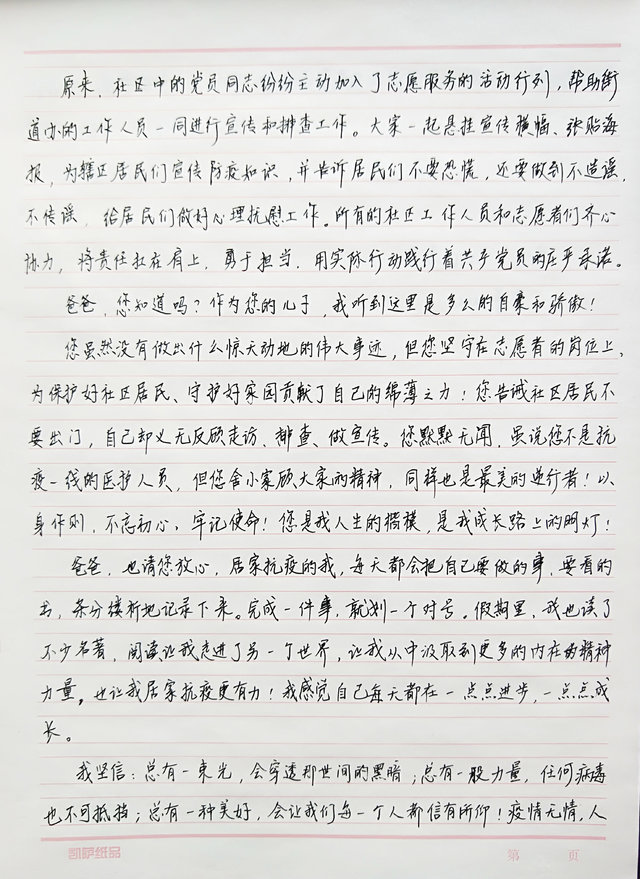 原来,社区中的党员同志纷纷主动加入了志愿服务的活动行列,帮助街
道办的工作人员一同进行宣传和排查工作。大家一起悬挂宣传横幅、张贴海
报,为辖区居民们宣传防疫知识,并告诉居民们不要恐慌,还要做到不造谣,
不传谣,给居民们做好心理抗慰工作。所有的社区工作人员和志愿者们齐心
协力,将责任扛在肩上,勇于担当,用实际行动践行着共产党员的庄严承诺。
爸爸,您知道吗?作为您的儿子,我听到这里是多么的自豪和骄傲!
您虽然没有做出什么惊天动地的伟大事迹,但您坚守在志愿者的岗位上,
为保护好社区居民、守护好家园贡献了自己的绵薄之力!您告诫社区居民不
要出门,自己却义无反顾走访、排查、做宣传。您默默无闻,虽说您不是抗
疫一线的医护人员,但您舍小家顾大家的精神,同样也是最美的逆行者!以
身作则,不忘初心,牢记使命!您是我人生的楷模,是我成长路上的明灯!
爸爸,也请您放心,居家抗疫的我,每天都会把自己要做的事,要看的
书,条分缕析地记录下来。完成一件事,就划一个对号。假期里,我也读了
不少名著,阅读让我走进了另一个世界,让我从中汲取到更多的内在的精神
力量。也让我居家抗疫更有力!我感觉自己每天都在一点点进步,一点点成
长。
我坚信:总有一束光,会穿透那世间的黑暗;总有一股力量,任何病毒
也不可抵挡;总有一种美好,会让我们每一个人都信有所仰!疫情无情,人
凯萨纸品 第 页